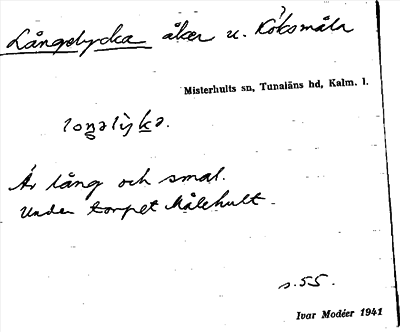 Långelycka åker u. Köksmåla
Misterhults sn, Tunaläns hd, Kalm. l.
loŋəlỳka.
Är lång och smal.
Under torpet Målehult.
s. 55.
Ivar Modéer 1941